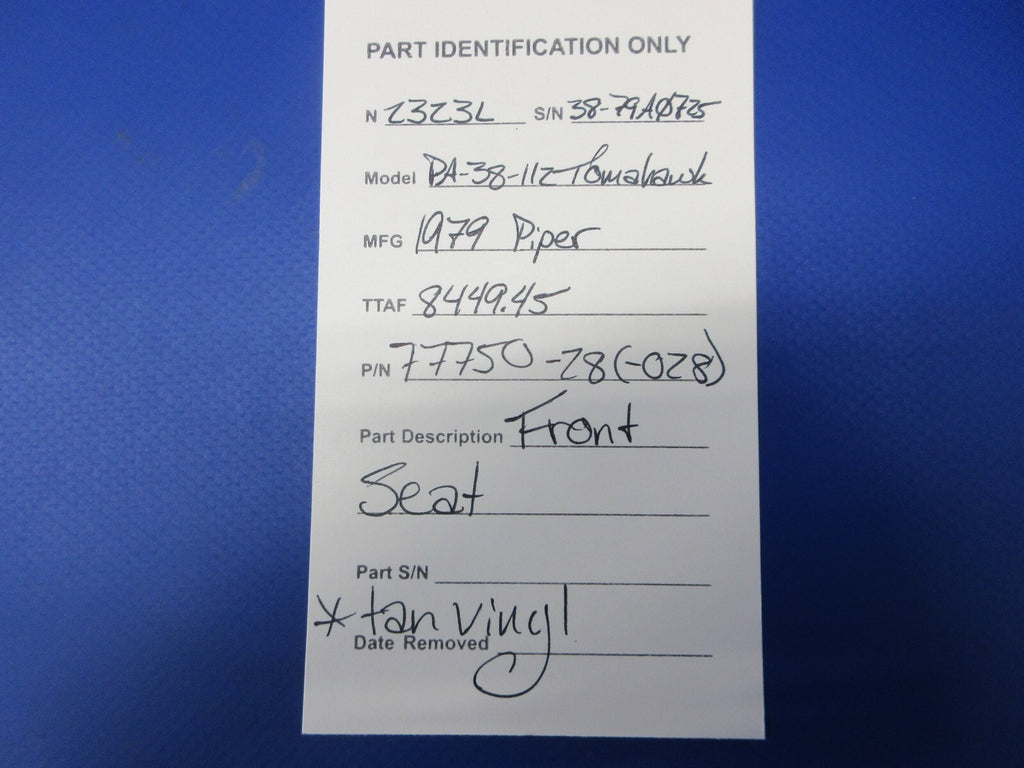 PART IDENTIFICATION ONLY
N 2323L S/N 38-79A0725
Model PA-38-112 Tomahawk
MFG 1979 Piper
TTAF 8449.45
P/N 77750-28(-028)
Part Description Front
Seat
Part S/N
* tan vinyl
Date Removed